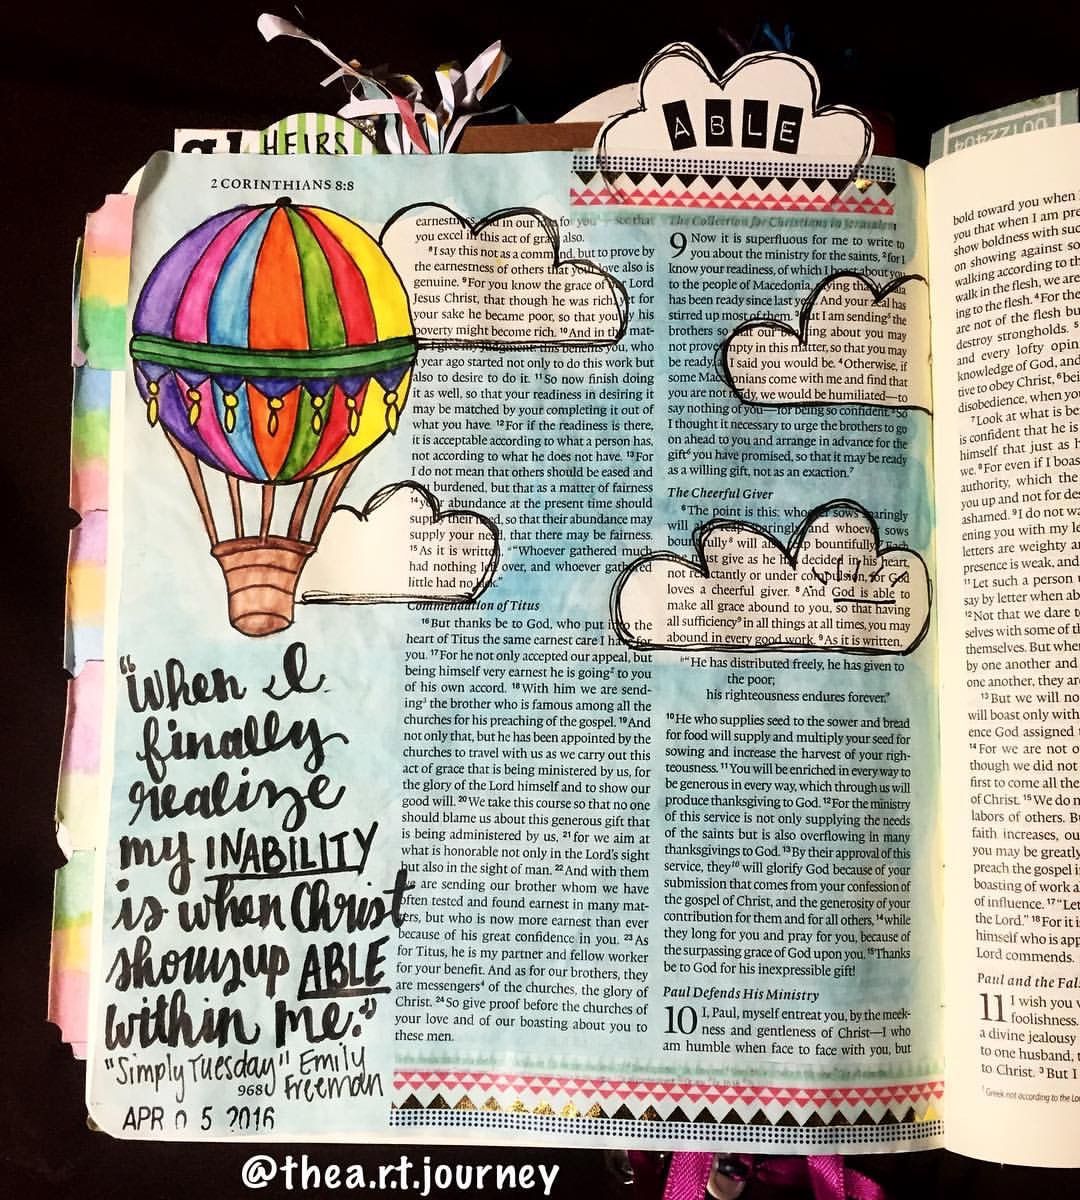 ABLE
HEIRS
2 CORINTHIANS 8:8
"When I
finally
realize
my INABILITY
is when Christ
shows up ABLE
within me."
"Simply Tuesday" Emily
Freeman
968
APR 0 5 2016
in our
you excel in this act of also.
⁸I say this not as a command, but to prove by
the earnestness of others that your love also is
genuine. ⁹For you know the grace of Lord
Jesus Christ, that though he was rich, yet for
your sake he became poor, so that you by his
poverty might become rich. ¹⁰And in this mat-
I give my judgment: this benefits you, who
a year ago started not only to do this work but
also to desire to do it. ¹¹So now finish doing
it as well, so that your readiness in desiring it
may be matched by your completing it out of
what you have. ¹²For if the readiness is there,
it is acceptable according to what a person has,
not according to what he does not have. ¹³For
I do not mean that others should be eased and
you burdened, but that as a matter of fairness
¹⁴your abundance at the present time should
supply their need, so that their abundance may
supply your need, that there may be fairness.
¹⁵As it is written, "Whoever gathered much
had nothing left over, and whoever gathered
little had no lack."
Commendation of Titus
¹⁶But thanks be to God, who put into the
heart of Titus the same earnest care I have for
you. ¹⁷For he not only accepted our appeal, but
being himself very earnest he is going² to you
of his own accord. ¹⁸With him we are send-
ing³ the brother who is famous among all the
churches for his preaching of the gospel. ¹⁹And
not only that, but he has been appointed by the
churches to travel with us as we carry out this
act of grace that is being ministered by us, for
the glory of the Lord himself and to show our
good will. ²⁰We take this course so that no one
should blame us about this generous gift that
is being administered by us, ²¹for we aim at
what is honorable not only in the Lord's sight
but also in the sight of man. ²²And with them
we are sending our brother whom we have
often tested and found earnest in many mat-
ters, but who is now more earnest than ever
because of his great confidence in you. ²³As
for Titus, he is my partner and fellow worker
for your benefit. And as for our brothers, they
are messengers⁴ of the churches, the glory of
Christ. ²⁴So give proof before the churches of
your love and of our boasting about you to
these men.
The Collection for Christians in Jerusalem
9 Now it is superfluous for me to write to
you about the ministry for the saints, ²for I
know your readiness, of which I boast about you
to the people of Macedonia, saying that
has been ready since last year. And your zeal has
stirred up most of them. ³But I am sending⁵ the
brothers so that our boasting about you may
not prove empty in this matter, so that you may
be ready, as I said you would be. ⁴Otherwise, if
some Macedonians come with me and find that
you are not ready, we would be humiliated—to
say nothing of you—for being so confident. ⁵So
I thought it necessary to urge the brothers to go
on ahead to you and arrange in advance for the
gift⁶ you have promised, so that it may be ready
as a willing gift, not as an exaction.⁷
The Cheerful Giver
⁶The point is this: whoever sows sparingly
will also reap sparingly, and whoever sows
bountifully⁸ will also reap bountifully. ⁷Each
one must give as he has decided in his heart,
not reluctantly or under compulsion, for God
loves a cheerful giver. ⁸And God is able to
make all grace abound to you, so that having
all sufficiency⁹ in all things at all times, you may
abound in every good work. ⁹As it is written,
"He has distributed freely, he has given to
the poor;
his righteousness endures forever."
¹⁰He who supplies seed to the sower and bread
for food will supply and multiply your seed for
sowing and increase the harvest of your righ-
teousness. ¹¹You will be enriched in every way to
be generous in every way, which through us will
produce thanksgiving to God. ¹²For the ministry
of this service is not only supplying the needs
of the saints but is also overflowing in many
thanksgivings to God. ¹³By their approval of this
service, they¹⁰ will glorify God because of your
submission that comes from your confession of
the gospel of Christ, and the generosity of your
contribution for them and for all others, ¹⁴while
they long for you and pray for you, because of
the surpassing grace of God upon you. ¹⁵Thanks
be to God for his inexpressible gift!
Paul Defends His Ministry
10 I, Paul, myself entreat you, by the meek-
ness and gentleness of Christ—I who
am humble when face to face with you, but
bold toward you when
you that when I am pre
show boldness with suc
on showing against so
walking according to th
walk in the flesh, we are
ing to the flesh. ⁴For the
are not of the flesh bu
destroy strongholds. ⁵
and every lofty opin
knowledge of God, and
tive to obey Christ, ⁶bei
disobedience, when yo
⁷Look at what is be
is confident that he is
himself that just as h
we. ⁸For even if I boas
authority, which the
you up and not for des
ashamed. ⁹I do not wa
ening you with my le
letters are weighty an
presence is weak, and
¹¹Let such a person
say by letter when ab
¹²Not that we dare t
selves with some of th
themselves. But whe
by one another and
one another, they are
¹³But we will no
will boast only with
ence God assigned
¹⁴For we are not o
though we did not
first to come all the
of Christ. ¹⁵We do n
labors of others. Bu
faith increases, ou
you may be greatly
preach the gospel i
boasting of work a
of influence. ¹⁷"Let
the Lord." ¹⁸For it i
himself who is app
Lord commends.
Paul and the Fal
11 I wish you
foolishness.
a divine jealousy
to one husband,
to Christ. ³But I
¹ Greek not according to the Lor
@thea.r.t.journey